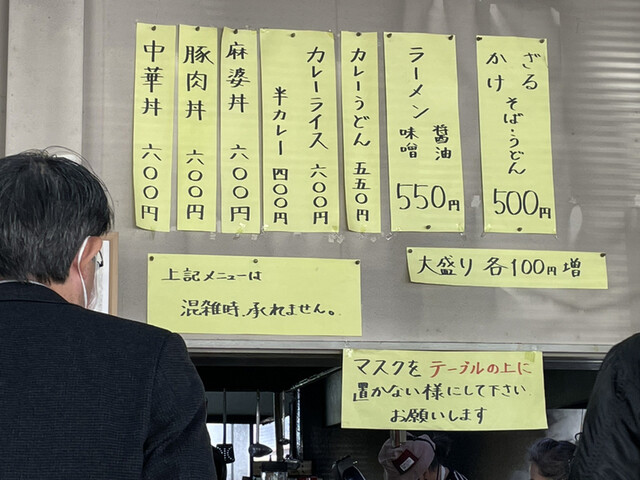 ざる
かけ
そば・うどん
500円
ラーメン
醤油
味噌
550円
カレーうどん 五五〇円
カレーライス 六〇〇円
半カレー 四〇〇円
麻婆丼 六〇〇円
豚肉丼 六〇〇円
中華丼 六〇〇円
大盛り 各100円増
上記メニューは
混雑時、承れません。
マスクをテーブルの上に
置かない様にして下さい
お願いします